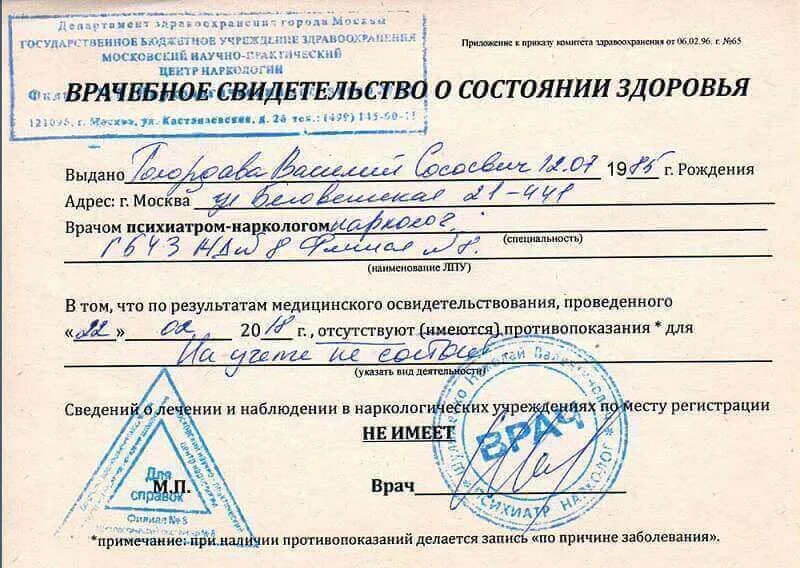 Департамент здравоохранения города Москвы
ГОСУДАРСТВЕННОЕ БЮДЖЕТНОЕ УЧРЕЖДЕНИЕ ЗДРАВООХРАНЕНИЯ
МОСКОВСКИЙ НАУЧНО-ПРАКТИЧЕСКИЙ
ЦЕНТР НАРКОЛОГИИ
121096, г. Москва, ул. Кастанаевская, д. 26 тел.: (499) 145-00-
Приложение к приказу комитета здравоохранения от 06.02.96. г. №65
ВРАЧЕБНОЕ СВИДЕТЕЛЬСТВО О СОСТОЯНИИ ЗДОРОВЬЯ
Выдано Василий Сосоевич 12.07 1985 г. Рождения
Адрес: г. Москва ул 21-441
Врачом психиатром-наркологом нарколог
(специальность)
ГБУЗ НД № 8 Филиал № 8.
(наименование ЛПУ)
В том, что по результатам медицинского освидетельствования, проведенного
«22» 02 2018 г., отсутствуют (имеются) противопоказания * для
На учете не состоит
(указать вид деятельности)
Сведений о лечении и наблюдении в наркологических учреждениях по месту регистрации
НЕ ИМЕЕТ
Николай Валентинович
ВРАЧ
ПСИХИАТР НАРКОЛОГ
Для
справок
Филиал №8
М.П. Врач
*примечание: при наличии противопоказаний делается запись «по причине заболевания».